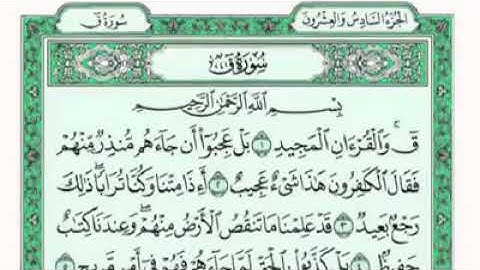 الجزء السادس والعشرون
سورة ق
سُورَةُ ق
بِسْمِ ٱللَّهِ ٱلرَّحْمَٰنِ ٱلرَّحِيمِ
قٓ ۚ وَٱلْقُرْءَانِ ٱلْمَجِيدِ ١ بَلْ عَجِبُوٓا۟ أَن جَآءَهُم مُّنذِرٌ مِّنْهُمْ
فَقَالَ ٱلْكَٰفِرُونَ هَٰذَا شَىْءٌ عَجِيبٌ ٢ أَءِذَا مِتْنَا وَكُنَّا تُرَابًا ۖ ذَٰلِكَ
رَجْعٌۢ بَعِيدٌ ٣ قَدْ عَلِمْنَا مَا تَنقُصُ ٱلْأَرْضُ مِنْهُمْ ۖ وَعِندَنَا كِتَٰبٌ
حَفِيظٌۢ ٤ بَلْ كَذَّبُوا۟ بِٱلْحَقِّ لَمَّا جَآءَهُمْ فَهُمْ فِىٓ أَمْرٍ مَّرِيجٍ ٥